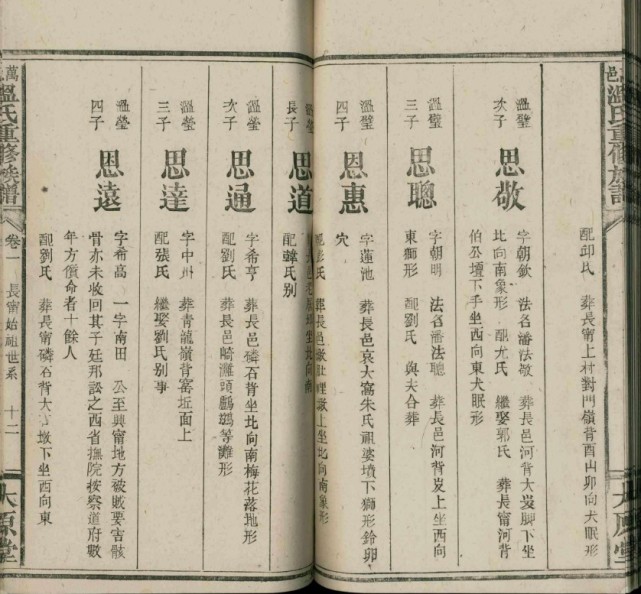 邑溫氏重修族譜
太原堂
配邱氏 葬長甯上村對門嶺背酉山卯向犬眠形
溫璧
次子
思敬
字朝欽 法名潘法敬 葬長邑河背大崀脚下坐
北向南象形 配尤氏 繼娶郭氏 葬長甯河背
伯公壇下手坐西向東犬眠形
溫璧
三子
思聰
字朝明 法名潘法聰 葬長邑河背崀上坐西向
東獅形 配劉氏 與夫合葬
溫璧
四子
恩惠
字蓮池 葬長邑哀大窩朱氏祖婆墳下獅形鈴卯
穴
溫瑩
長子
思道
配鍾氏別
溫瑩
次子
思通
字希亨 葬長邑磷石背坐北向南梅花落地形
配劉氏 葬長邑崎灘頭鸕鷀等灘形
溫瑩
三子
思達
字中州 葬青龍嶺背窑坵面上
配張氏 繼娶劉氏別事
溫瑩
四子
恩遠
字希高 一字南田 公至興甯地方被賊要吉骸
骨亦未收回其子廷邦訟之西省撫院按察道府數
年方償命者十餘人
配劉氏 葬長甯磷石背大墩下坐西向東
萬
溫氏重修族譜
卷一 長甯始祖世系 十二
太原堂